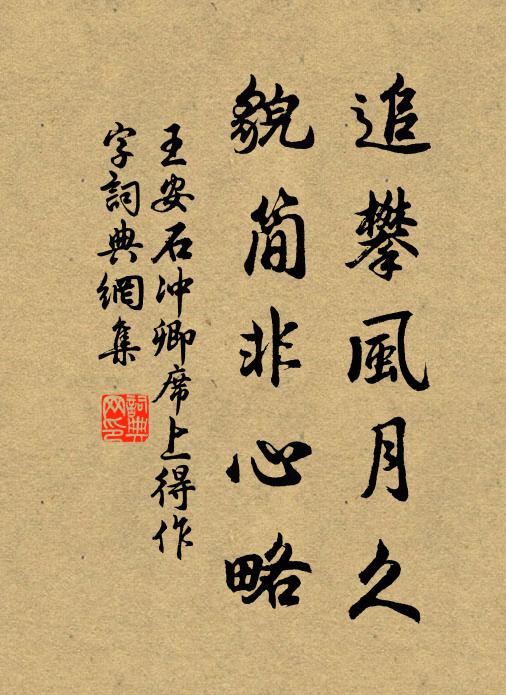 追攀風月久
貌简非心略
王安石冲卿席上得作
字詞典網集
詞典
网印